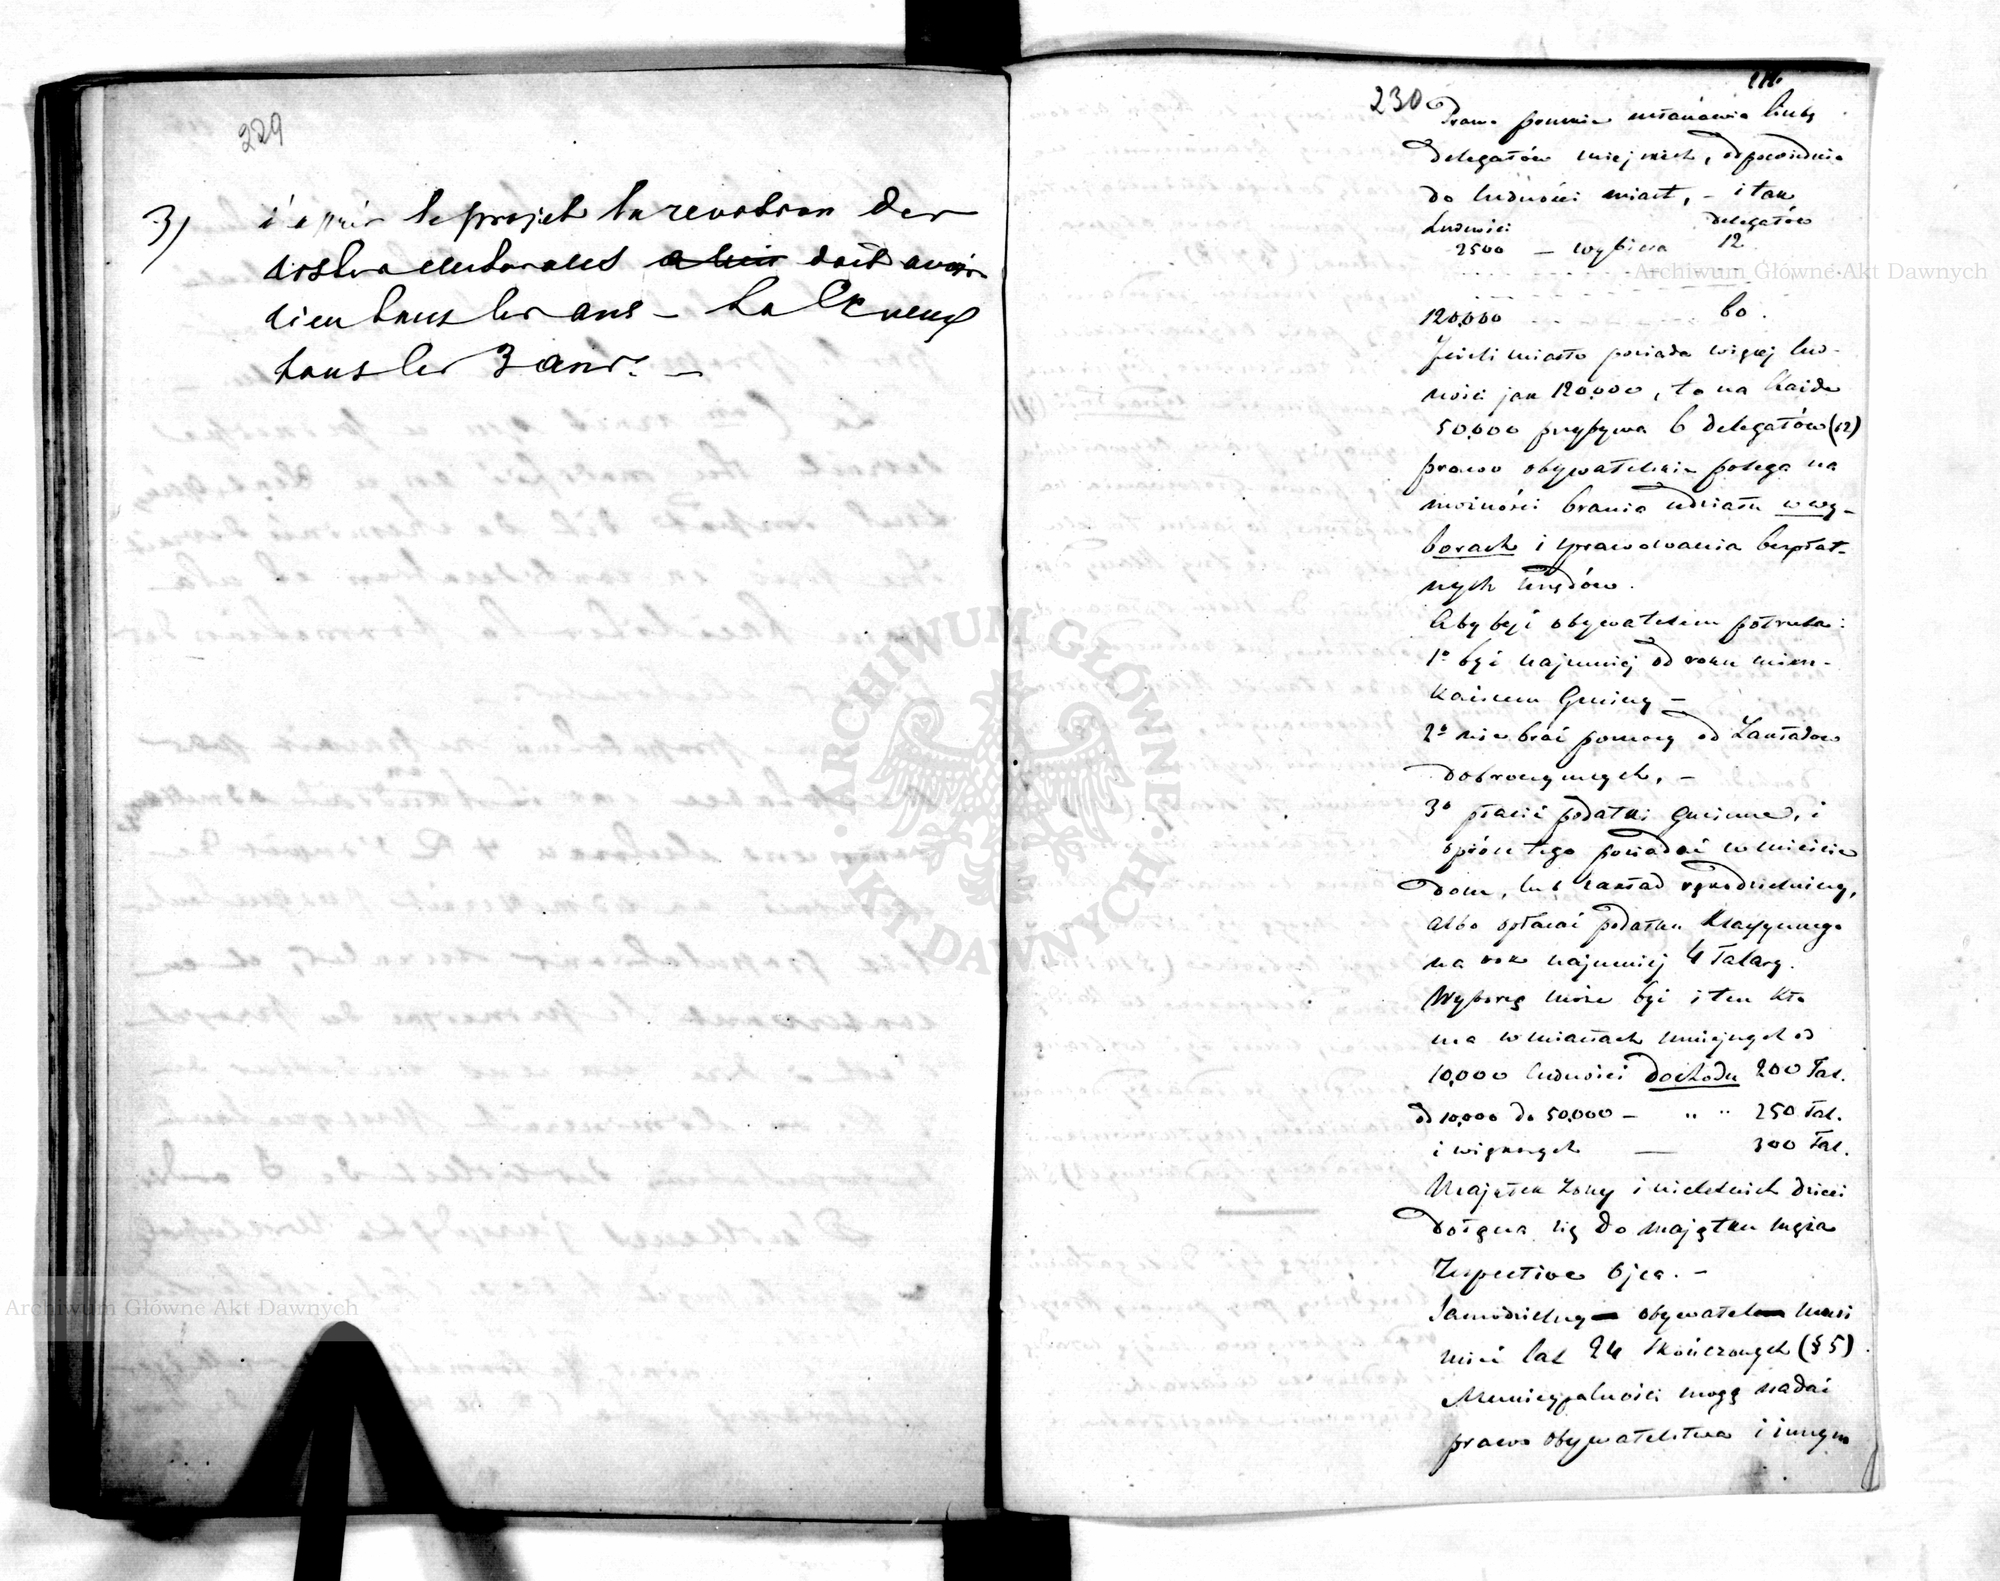 229
3) d'après le projet la revision des
listes electorales a lieu doit avoir
lieu tous les ans – La C propose
tous les 3 ans. –
230
116
Prawo pruskie ustanawia liczbę
delegatów miejskich, odpowiednio
do ludności miast, – i tak
Ludności delegatów
2500 – wybiera 12
120,000 60.
Jeżeli miasto posiada więcej lud-
ności jak 120,000, to na każde
50,000 przybywa 6 delegatów (12)
prawo obywatelskie polega na
możności brania udziału w wy-
borach i sprawowania bezpłat-
nych Urzędów.
Aby być obywatelem potrzeba:
1º być najmniej od roku miesz-
kańcem Gminy –
2º nie brać pomocy od Zakładów
dobroczynnych, –
3º płacić podatki Gminne, i
oprócz tego posiadać w mieście
Dom, lub zakład rękodzielniczy,
albo opłacać podatku Klassycznego
na rok najmniej 4 Talary.
Wyborcą może być i ten kto
ma w miastach mniejszych od
10,000 ludności dochodu 200 Tal.
od 10,000 do 50,000 – " " 250 Tal.
i większych — 300 Tal.
Majątek żony i nieletnich dzieci
dołącza się do majątku męża
respective Ojca. –
Samodzielny obywatel musi
mieć lat 24 skończonych (§ 5)
Municypalności mogą nadać
prawo obywatelstwa i innym
Archiwum Główne Akt Dawnych
Archiwum Główne Akt Dawnych
ARCHIWUM GŁÓWNE · AKT DAWNYCH ·